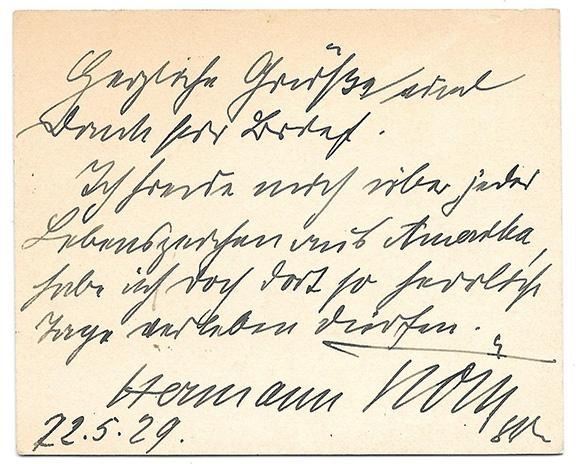 Herzliche Grüße und
Dank für Brief.
Ich freue mich über jedes
Lebenszeichen aus Amerika,
habe ich doch dort so herrliche
Tage verleben dürfen.
Hermann
22.5.29.